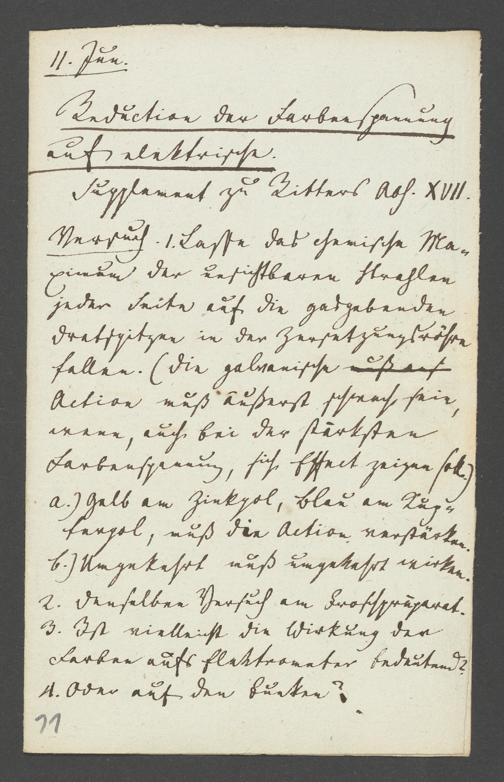 11. Jun.
Reduction der Farbenspannung
auf elektrische.
Supplement zu Ritters Abh. XVII.
Versuch. 1. Lasse das chemische Ma-
ximum der unsichtbaren Strahlen
jeder Seite auf die gasgebenden
Dratspitzen in der Zersetzungsröhre
fallen. (die galvanische muß auf
Action muß äußerst schwach sein,
wenn, auch bei der stärksten
Farbenspannung, sich Effect zeigen soll.)
a.) Gelb am Zinkpol, blau am Kup-
ferpol, muß die Action verstärken.
b.) Umgekehrt muß umgekehrt wirken.
2. Denselben Versuch am Froschpräparat.
3. Ist vielleicht die Wirkung der
Farben aufs Elektrometer bedeutend?
4. Oder auf den Funken?
11